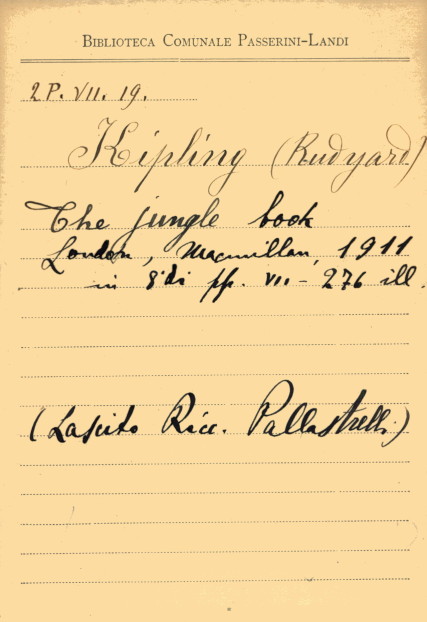 BIBLIOTECA COMUNALE PASSERINI-LANDI
2P. VII. 19.
Kipling (Rudyard)
The jungle book
London, Macmillan, 1911
in 8° di pp. VII - 276 ill.
(Lascito Ricc. Pallastrelli)